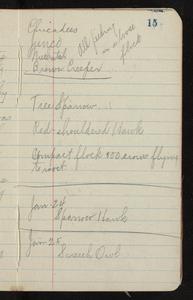 15
Chicadees
Junco
Nuthatch
Brown Creeper
All feeding
in a loose
flock
Tree Sparrow
Red-shouldered Hawk
Compact flock 400 crows flying
to roost
Jan 24
Sparrow Hawk
Jan 25
Screech Owl